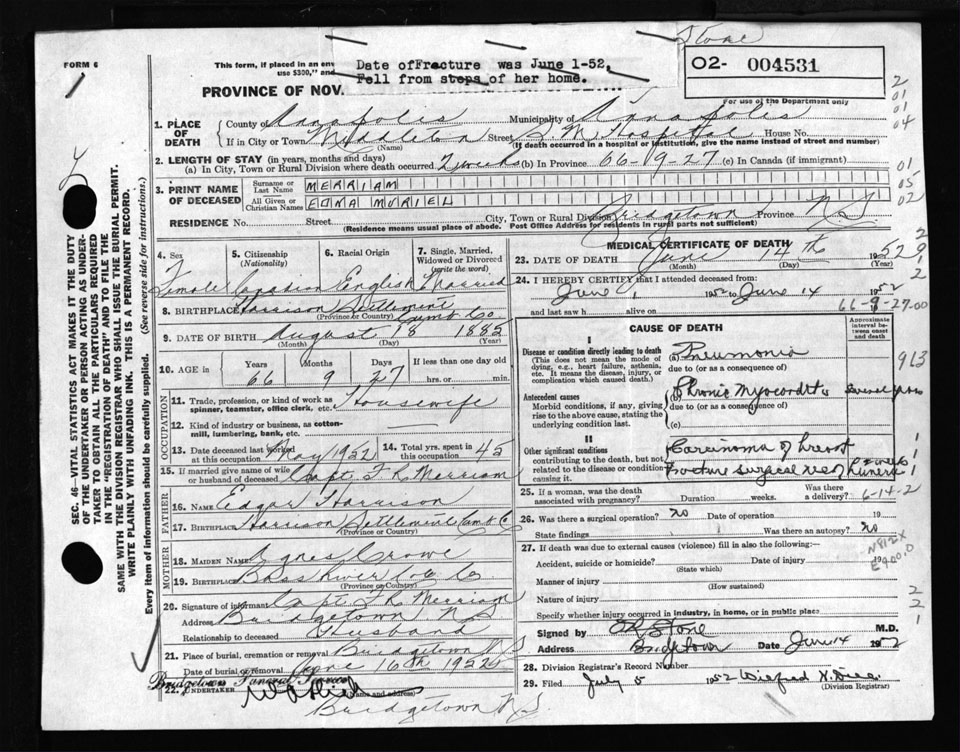 Stone
FORM 6
This form, if placed in an env
use $300," and
Date ofFracture was June 1-52.
Fell from steps of her home.
O2- 004531
PROVINCE OF NOV.
For use of the Department only
2
01
01
04
1. PLACE OF DEATH
County of Annapolis Municipality of Annapolis
If in City or Town Middleton Street S. M. Hospital House No.
(Name) (If death occurred in a hospital or institution, give the name instead of street and number)
2. LENGTH OF STAY (in years, months and days)
(a) In City, Town or Rural Division where death occurred 2 weeks (b) In Province 66-9-27 (c) In Canada (if immigrant)
01
05
02
3. PRINT NAME OF DECEASED
Surname or Last Name MERRIAM
All Given or Christian Names EDNA MURIEL
RESIDENCE No. Street City, Town or Rural Division Bridgetown Province N.S
(Residence means usual place of abode. Post Office Address for residents in rural parts not sufficient)
4. Sex Female
5. Citizenship (Nationality) Canadian
6. Racial Origin English
7. Single, Married, Widowed or Divorced (write the word) Married
8. BIRTHPLACE Harrison Settlement Cumb Co.
(Province or Country)
9. DATE OF BIRTH August 18 1885
(Month) (Day) (Year)
10. AGE in Years 66 Months 9 Days 27 If less than one day old hrs. or min.
OCCUPATION
11. Trade, profession, or kind of work as spinner, teamster, office clerk, etc. Housewife
12. Kind of industry or business, as cotton-mill, lumbering, bank, etc.
13. Date deceased last worked at this occupation May 1952 14. Total yrs. spent in this occupation 45
15. If married give name of wife or husband of deceased Capt. F. R. Merriam
FATHER
16. NAME Edgar Harrison
17. BIRTHPLACE Harrison Settlement Cumb Co
(Province or Country)
MOTHER
18. MAIDEN NAME Agnes Crowe
19. BIRTHPLACE Bass River Col. Co.
(Province or Country)
20. Signature of informant Capt. F R Merriam
Address Bridgetown N S
Relationship to deceased Husband
21. Place of burial, cremation or removal Bridgetown N S
Date of burial or removal June 16th 1952
Bridgetown Funeral Service
22. UNDERTAKER
(Name and address)
Bridgetown N.S.
MEDICAL CERTIFICATE OF DEATH
23. DATE OF DEATH June 14th 1952
(Month) (Day) (Year)
24. I HEREBY CERTIFY that I attended deceased from:
June 1 1952 to June 14 1952
and last saw h alive on 19
66-9-27-00
CAUSE OF DEATH
Approximate interval between onset and death
I
Disease or condition directly leading to death
(This does not mean the mode of dying, e.g., heart failure, asthenia, etc. It means the disease, injury, or complication which caused death.)
(a) Pneumonia
due to (or as a consequence of)
913
Antecedent causes
Morbid conditions, if any, giving rise to the above cause, stating the underlying condition last.
(b) Chronic Myocarditis Several years
due to (or as a consequence of)
(c)
II
Other significant conditions
contributing to the death, but not related to the disease or condition causing it.
Carcinoma of breast
Fracture surgical neck humerus
25. If a woman, was the death associated with pregnancy? Duration weeks. Was there a delivery?
6-14-2
26. Was there a surgical operation? no Date of operation 19
State findings Was there an autopsy? no
27. If death was due to external causes (violence) fill in also the following:—
Accident, suicide or homicide? Date of injury 19
(State which)
Manner of injury
(How sustained)
Nature of injury
Specify whether injury occurred in industry, in home, or in public place
N812X
E900.0
Signed by Stone M.D.
Address Bridgetown Date June 14 1952
28. Division Registrar's Record Number
29. Filed July 5 1952
(Division Registrar)
SEC. 46—VITAL STATISTICS ACT MAKES IT THE DUTY
OF THE UNDERTAKER OR PERSON ACTING AS UNDER-
TAKER TO OBTAIN ALL THE PARTICULARS REQUIRED
IN THE "REGISTRATION OF DEATH" AND TO FILE THE
SAME WITH THE DIVISION REGISTRAR WHO SHALL ISSUE THE BURIAL PERMIT.
WRITE PLAINLY WITH UNFADING INK. THIS IS A PERMANENT RECORD.
Every item of information should be carefully supplied. (See reverse side for instructions.)